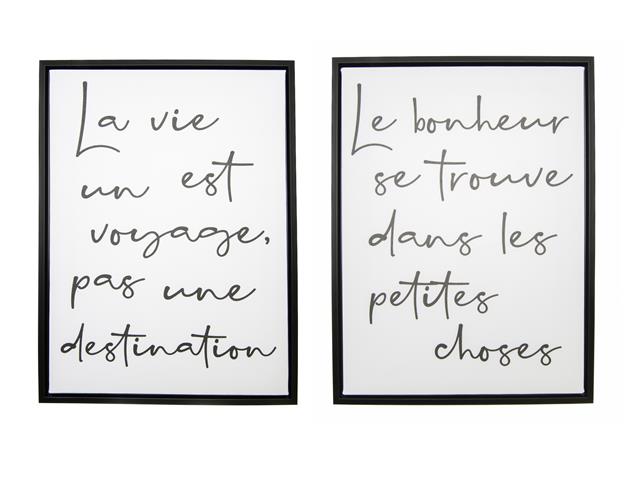 La vie
un est
voyage,
pas une
destination
Le bonheur
se trouve
dans les
petites
choses